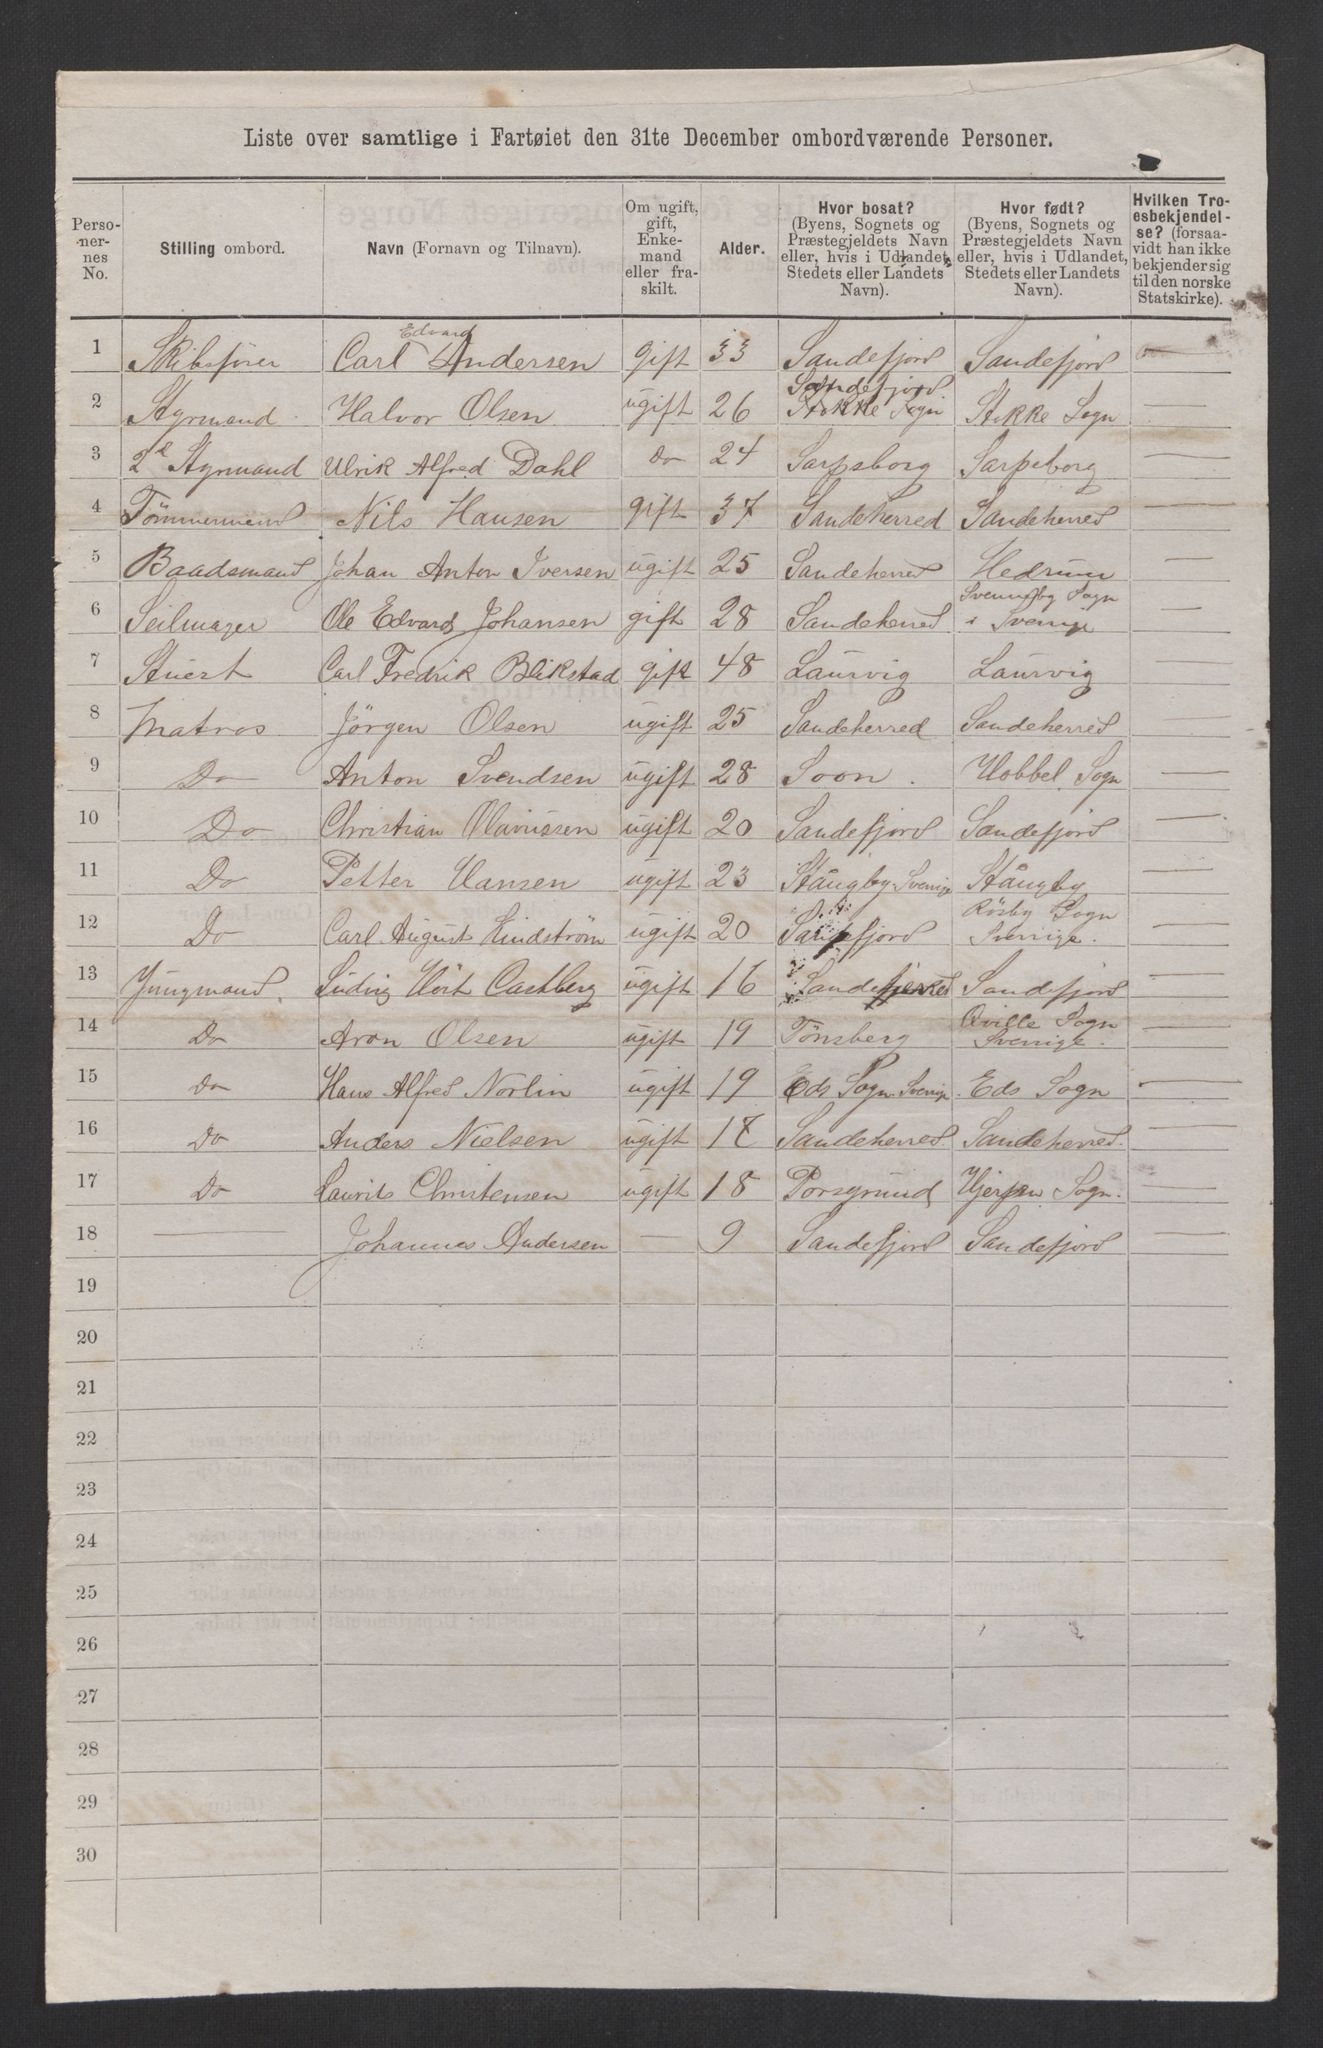 Liste over samtlige i Fartøiet den 31te December ombordværende Personer.
Perso-
ner-
nes
No.
Stilling ombord.
Navn (Fornavn og Tilnavn).
Om ugift,
gift,
Enke-
mand
eller fra-
skilt.
Alder.
Hvor bosat?
(Byens, Sognets og
Præstegjeldets Navn
eller, hvis i Udlandet,
Stedets eller Landets
Navn).
Hvor født?
(Byens, Sognets og
Præstegjeldets Navn
eller, hvis i Udlandet,
Stedets eller Landets
Navn).
Hvilken Tro-
esbekjendel-
se? (forsaa-
vidt han ikke
bekjender sig
til den norske
Statskirke).
1 Skibsfører Carl Edvard Andersen gift 33 Sandefjord Sandefjord —
2 Styrmand Halvor Olsen ugift 26 Sandefjord Stokke Sogn Stokke Sogn —
3 2d Styrmand Ulrik Alfred Dahl Do 24 Sarpsborg Sarpsborg —
4 Tømmermand Nils Hansen gift 37 Sandeherred Sandeherred —
5 Baadsmand Johan Anton Iversen ugift 25 Sandeherred Hedrum —
6 Seilmager Ole Edvard Johansen gift 28 Sandeherred Sogn i Sverige —
7 Stuert Carl Fredrik Blikstad gift 48 Laurvig Laurvig —
8 Matros Jörgen Olsen ugift 25 Sandeherred Sandeherred —
9 Do Anton Svendsen ugift 28 Soon. Hobbel Sogn —
10 Do Christian Olavissen ugift 20 Sandefjord Sandefjord —
11 Do Petter Hansen ugift 23 Stångby Sverige Stångby —
12 Do Carl August Lindström ugift 20 Sandefjord Sogn Sverige. —
13 Jungmand. Ludvig Hört Castberg ugift 16 Sandefjord —
14 Do Aron Olsen ugift 19 Tönsberg Qville Sogn Sverige. —
15 Do Hans Alfred Norlin ugift 19 Eds Sogn Sverige. Eds Sogn —
16 Do Anders Nielsen ugift 17 Sandeherred. Sandeherred. —
17 Do Laurits Christensen ugift 18 Porsgrund Hjerpen Sogn. —
18 — Johannes Andersen — 9 Sandefjord Sandefjord —
19
20
21
22
23
24
25
26
27
28
29
30